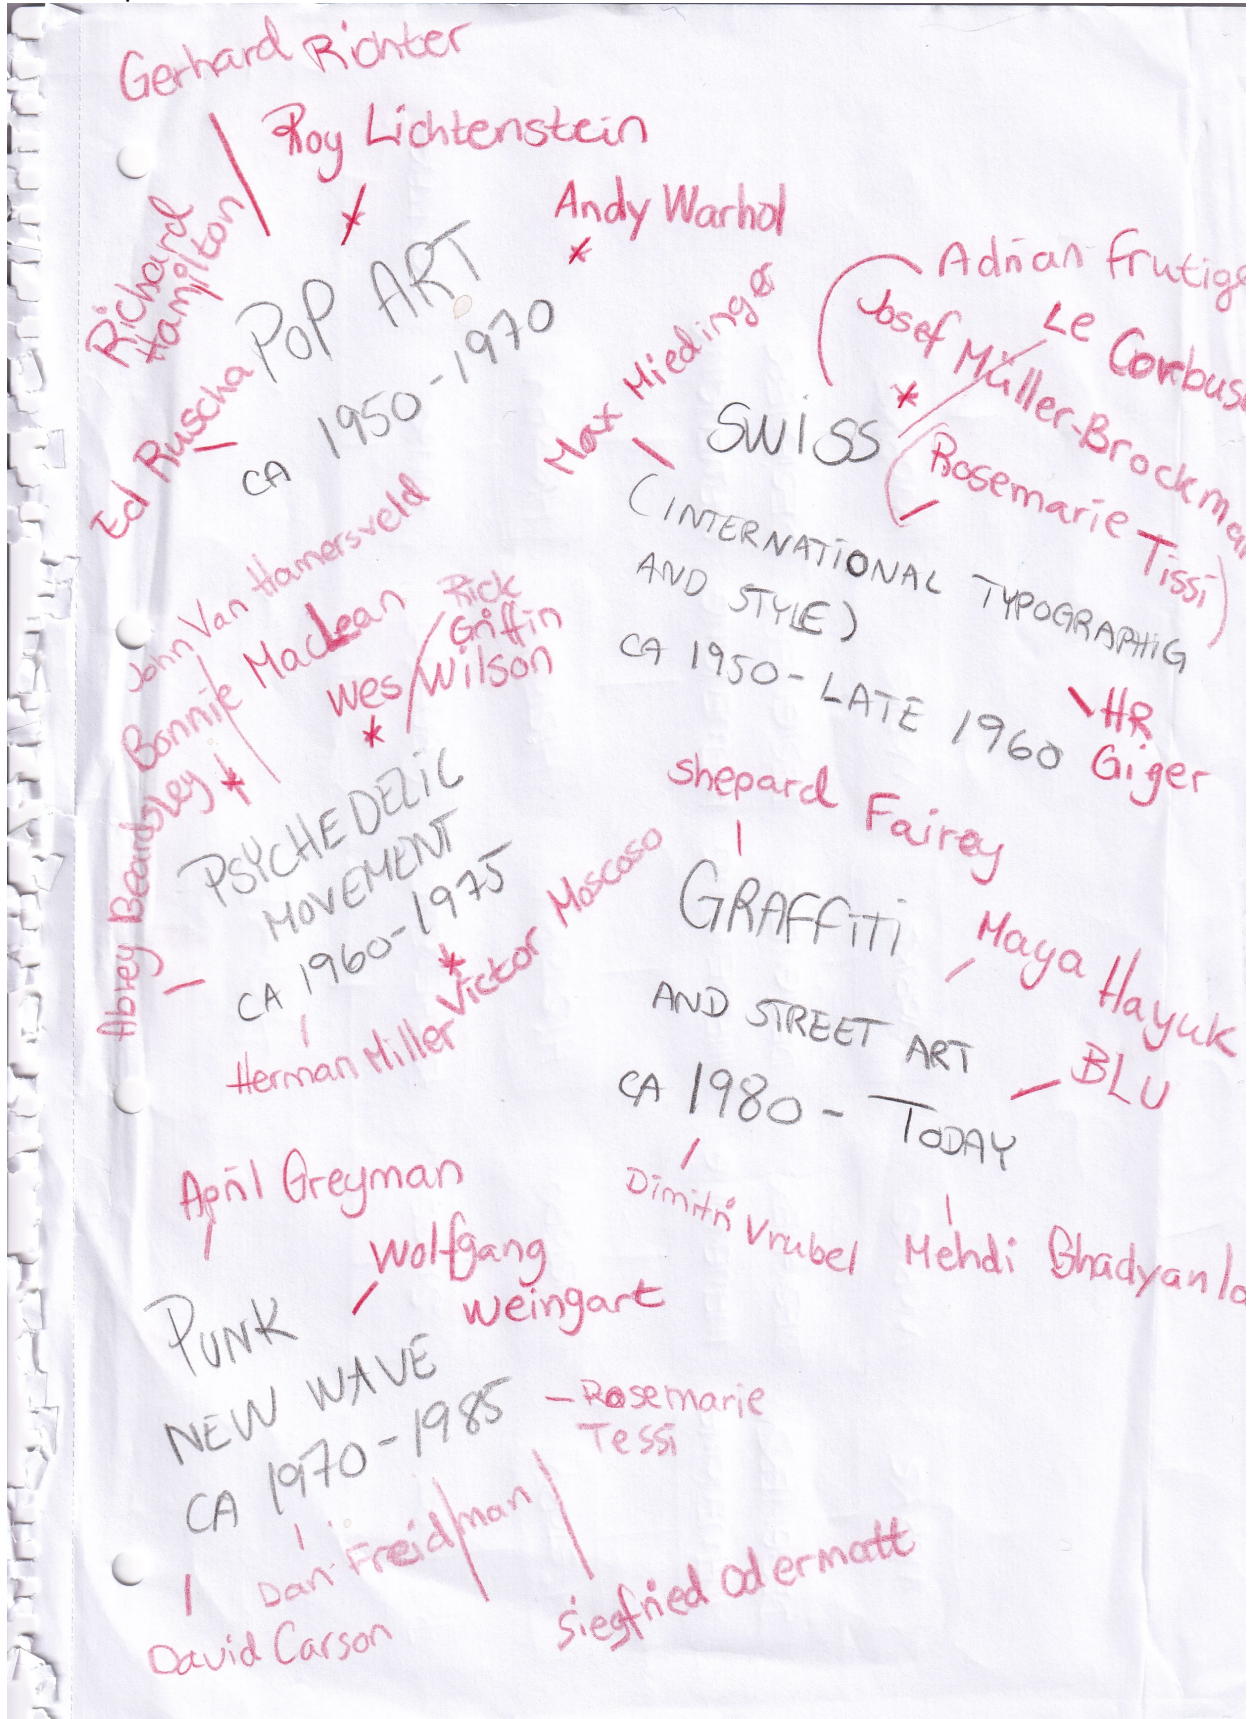 Gerhard Richter
Roy Lichtenstein
Andy Warhol
Richard
Hamilton
Ed Ruscha
POP ART
CA 1950-1970
Adrian Frutige
Le Corbus
Josef Müller-Brockman
Max Miedinger
(Rosemarie Tissi)
SWISS
(INTERNATIONAL TYPOGRAPHIG
AND STYLE)
CA 1950-LATE 1960
HR
Giger
John Van Hamersveld
Bonnie MacLean
Rick
Griffin
Wes Wilson
Abrey Beardsley
PSYCHEDELIC
MOVEMENT
CA 1960-1975
Victor Moscoso
Herman Miller
Shepard Fairey
GRAFFITI
AND STREET ART
CA 1980 - TODAY
Maya Hayuk
BLU
Dimitri Vrubel
Mehdi Ghadyanlo
April Greyman
Wolfgang
Weingart
PUNK
NEW WAVE
CA 1970-1985
Rosemarie
Tessi
Dan Freidman
Siegfried Odermatt
David Carson